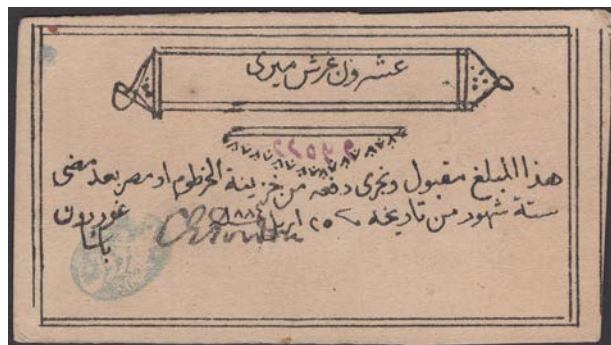 عشرون غرش ميرى
هذا المبلغ مقبول ونجرى دفعه من خزينة الخرطوم او مصر بعد مضى
ستة شهور من تاريخه ٢٥ ابريل ١٨٨٤ غوردون
باشا